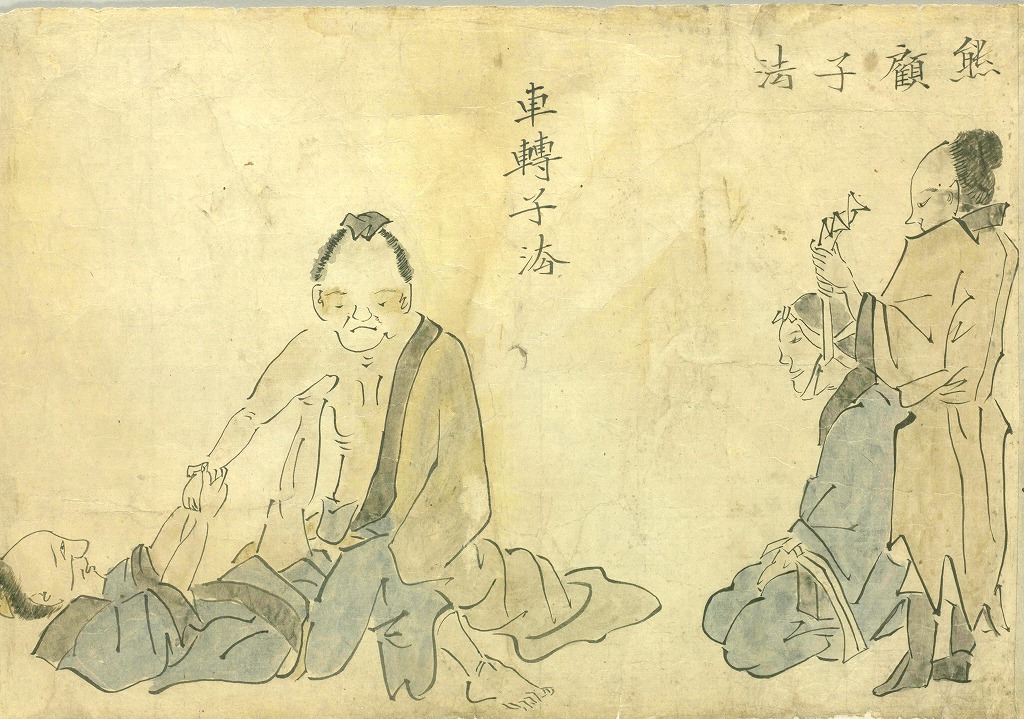 熊顧子法
車轉子法